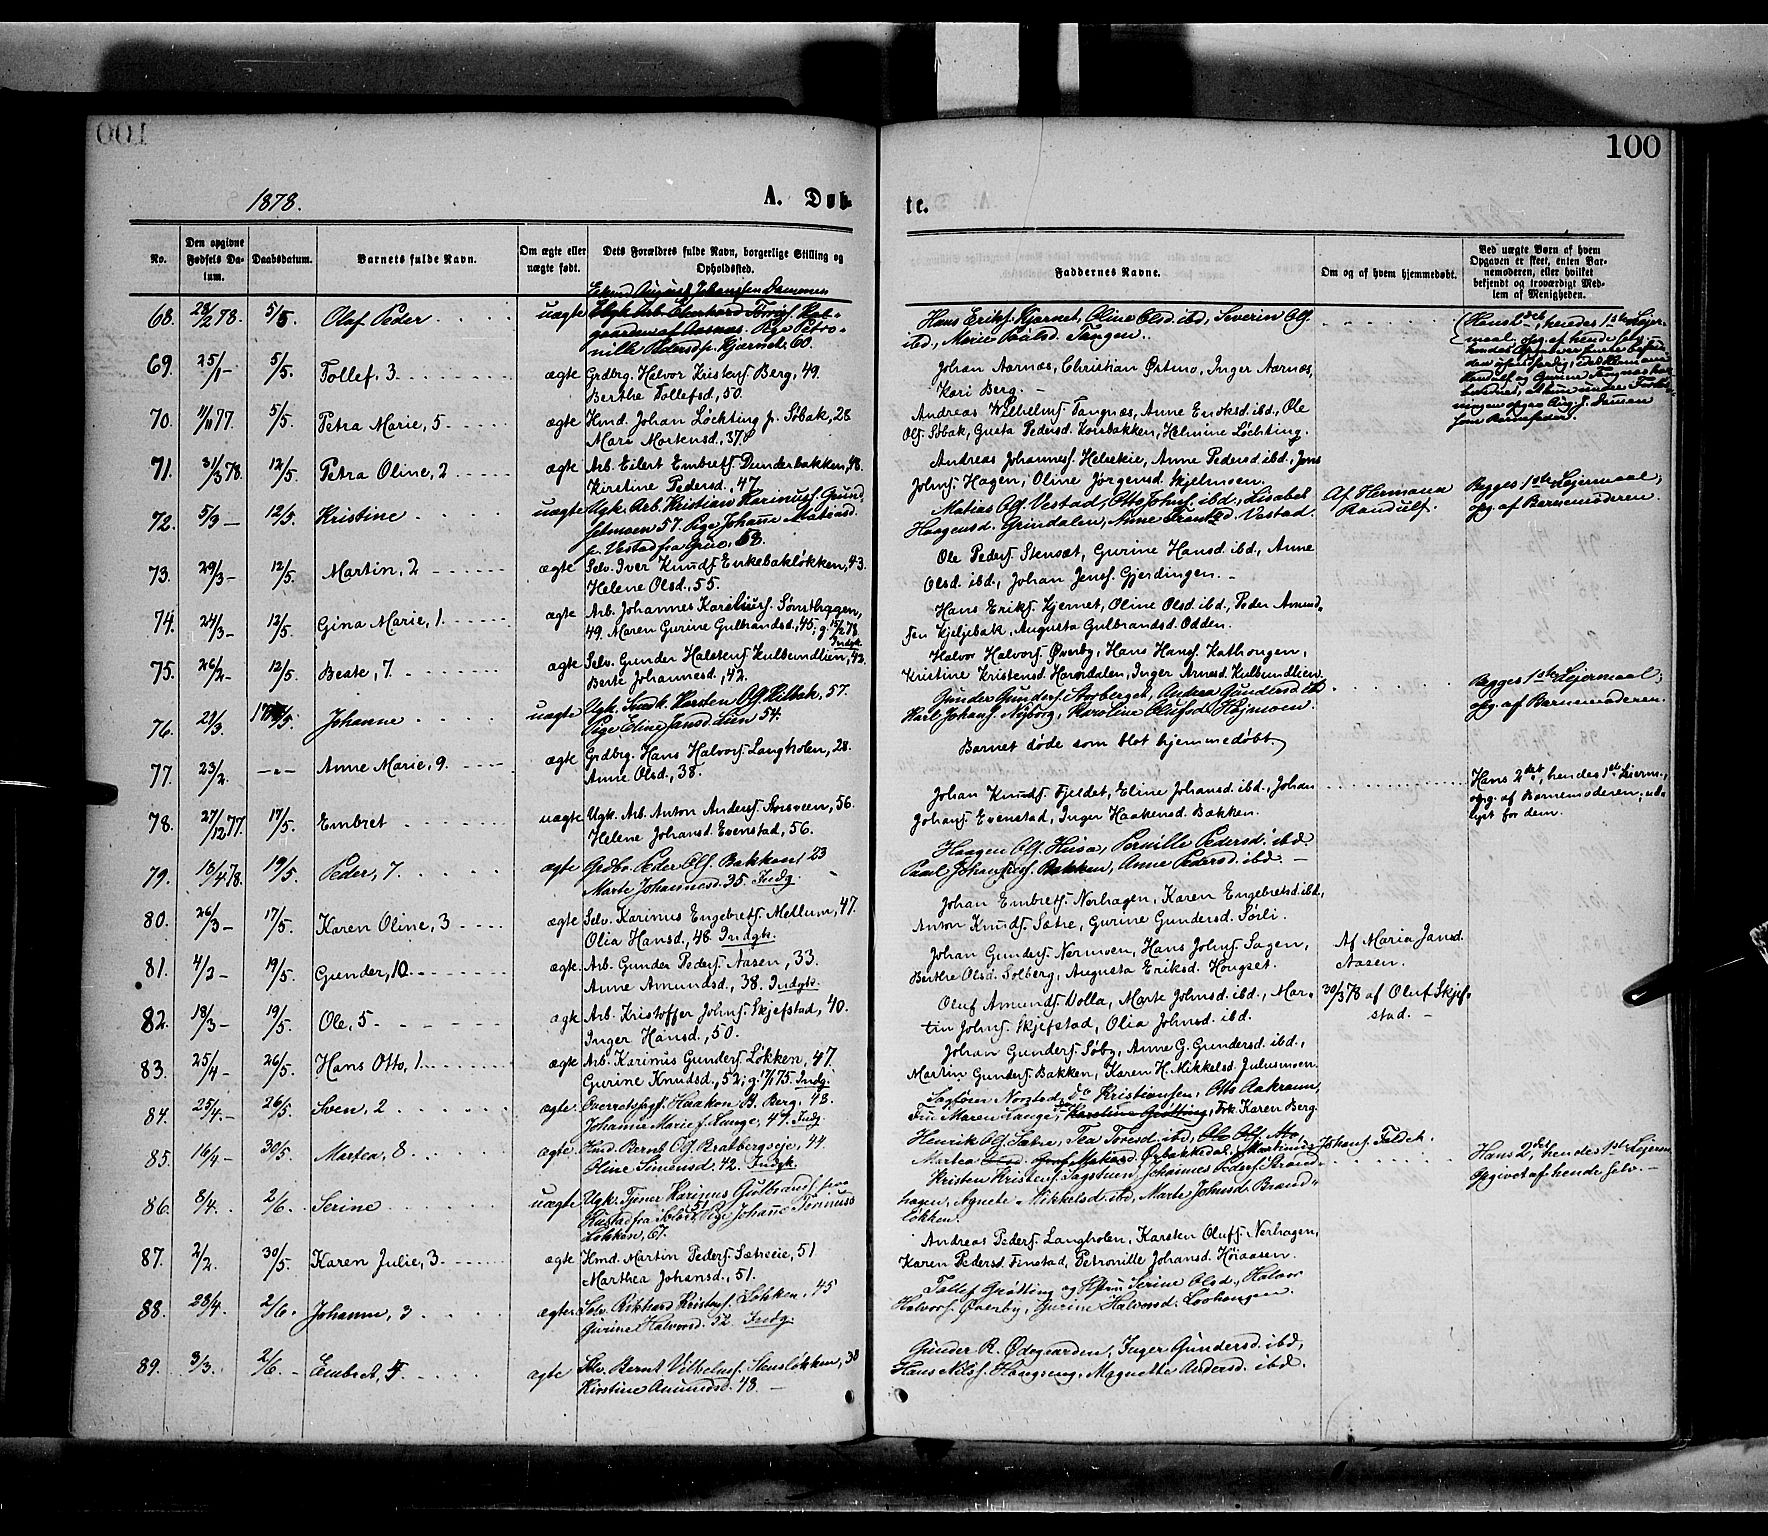 100
1878.
A. Døb-
te.
No.
Den opgivne Fødsels Datum.
Daabsdatum.
Barnets fulde Navn.
Om ægte eller uægte født.
Dets Forældres fulde Navn, borgerlige Stilling og Opholdssted.
Faddernes Navne.
Om og af hvem hjemmedøbt.
Ved uægte Børn af hvem Opgaven er skeet, enten Barnemoderen, eller hvilket bekjendt og troværdigt Medlem af Menigheden.
68. 28/2 78. 5/5. Olaf Peder uægte
Pige Petro-
nille Pedersd. Kjernet 60.
Hans Eriks. Kjernet, Oline Olsd. ibd., Severin Ols.
ibd., Marie Paulsd. Tangen.
69. 25/1- 5/5. Tollef, 3 ægte Grdbrg. Halvor Kristens. Berg, 49.
Berthe Tollefsd., 50.
Johan Aarnæs, Christian Østmo, Inger Aarnæs,
Kari Berg. -
70. 11/11 77. 5/5. Petra Marie, 5 ægte Hmd. Johan Løchting p. Søbak, 28
Mari Mortensd., 37
Andreas Wilhelms. Tangnæs, Anne Eriksd. ibd., Ole
Ols. Søbak, Gusta Pedersd. Korsbakken, Helmine Løchting.
71. 31/3 78. 12/5. Petra Oline, 2 ægte Arb. Eilert Embrets. Dunderbakken, 48.
Kirstine Pedersd., 47.
Andreas Johannes. Helsekie, Anne Pedersd. ibd., Jens
Johns. Hagen, Oline Jørgensd. Skjelmoen.
72. 5/3- 12/5. Kristine uægte Ugk. Arb. Kristian Karinus. Grund-
setmoen 57. Pige Johanne Matiasd.
p. Vestad fra Grue, 53.
Matias Ols. Vestad, Otto Johns. ibd., Lisabet
Haagensd. Grindalen, Anne Frantsd. Vestad.
Af Hermana
Randulf.
Begges 1ste Leiermaal,
opg. af Barnemoderen.
73. 29/3- 12/5. Martin, 2 ægte Selv. Iver Knuds. Enkebakløkken, 43.
Helene Olsd., 55.
Ole Peders. Stensæt, Gurine Hansd. ibd., Anne
Olsd. ibd., Johan Jens. Gjerdingen. -
74. 24/3- 12/5. Gina Marie, 1. ægte Arb. Johannes Karelius. Sønstbyggen,
49. Maren Gurine Gulbrandsd., 45, g. 15/2 78.
Indgk.
Hans Eriks. Kjernet, Oline Olsd. ibd., Peder Amund-
sen Kjeljebak, Augusta Gulbrandsd. Odden.
75. 26/2- 12/5. Beate, 7. ægte Selv. Gunder Halstens. Kulbundlien, 42.
Berte Johannesd., 42.
Halvor Halvors. Øverby, Hans Hans. Kathougen,
Kristine Kristensd. Horndalen, Inger Arnesd. Kulbundlien.
76. 21/3. Johanne uægte
Pige Eline Jansd. Lien 54.
Gunder Gunders. Storberget, Andrea Gundersd. ibd.
Karl Johans. Nyborg, Karoline Olufsd. Højmoen.
Begges 1ste Leiermaal,
opg. af Barnemoderen.
77. 23/2. -"- Anne Marie, 9. ægte Grdbrg. Hans Halvors. Langholen, 28.
Anne Olsd., 38.
Barnet døde som blot hjemmedøbt.
78. 27/12 77. 17/5. Embret uægte Ugk. Arb. Anton Anders. Storsveen, 56.
Helene Johansd. Evenstad, 56.
Johan Knuds. Fjeldet, Eline Johansd. ibd., Johan
Johans. Evenstad, Inger Haakensd. Bakken.
Hans 2det, hendes 1ste Leierm.,
opg. af Barnemoderen, ud-
lyst for dem.
79. 18/4 78. 19/5. Peder, 7. ægte Grdbr. Peder Ols. Bakken, 23
Marte Johannesd. 35. Indg.
Haagen Ols. Husa, Pernille Pedersd. ibd.
Paul Johans. Bakken, Anne Pedersd. ibd. -
80. 26/3- 17/5. Karen Oline, 3 ægte Selv. Karinus Engebrets. Mellum, 47.
Olia Hansd., 48. Indgk.
Johan Embrets. Nerhagen, Karen Engebretsd. ibd.,
Anton Knuds. Sætre, Gurine Gundersd. Sørli.
81. 4/2- 19/5. Gunder, 10. ægte Arb. Gunder Peders. Aasen, 33.
Anne Amundsd., 38. Indgk.
Johan Gunders. Nermoen, Hans Johns. Sagen,
Berthe Olsd. Solberg, Augusta Eriksd. Hougset.
Af Maria Jansd.
Aasen.
82. 18/3- 19/5. Ole, 5 ægte Arb. Kristoffer Johns. Skjefstad, 40.
Inger Hansd., 50.
Oluf Amunds. Volla, Marte Johnsd. ibd., Mar-
tin Johns. Skjefstad, Olia Johnsd. ibd.
30/3 78 af Oluf Skjef-
stad. -
83. 25/4- 26/5. Hans Otto, 1. ægte Arb. Karinus Gunders. Løkken, 47.
Gurine Knudsd., 52, g. 17/1 75. Indg.
Johan Gunders. Søby, Anne G. Gundersd. ibd.,
Martin Gunders. Bakken, Karen H. Mikkelsd. Juliusmoen.
84. 25/4.- 26/5. Sven, 2 ægte Overretssagf. Haakon B. Berg, 48.
Johanna Marie f. Lange, 47. Indg
Sagfører Norstad, do Kristiansen, Otto Aakrann,
Fru Maren Lange, Frk. Karen Berg.
85. 16/4- 30/5. Martea, 8. ægte Hmd. Bernt Ols. Bratbergseje, 44.
Oline Simensd. 42. Indgk.
Henrik Ols. Sætre, Tea Toresd. ibd.,
Martinus Johans. Faldet.
86. 8/4. 2/6. Serine uægte Ugk. Tjener Karinus Gulbrands. fra
Pige Johanne
Løkken, 67.
Kristen Kristens. Sagstuen, Johannes Peders. Strand-
hagen, Agnete Mikkelsd. ibd., Marte Johnsd. Brænd-
løkken.
Hans 2det, hendes 1ste Leierm.
Opgivet af hende selv. -
87. 2/2. 30/5. Karen Julie, 3. ægte Hmd. Martin Peders. Sætreeie, 51
Marthea Johansd., 51.
Andreas Peders. Langholen, Karsten Olufs. Nerhagen,
Karen Pedersd. Finstad, Petronille Johansd. Høiaasen.
88. 28/4. 2/6. Johanne, 3 ægte Selv. Rikhard Kristens. Løkken, 45
Gurine Halvorsd. 52. Indg.
Tollef Grøtting og Hustru Serine Olsd., Halvor
Halvors. Øverby, Gurine Halvorsd. Loshaugen.
89. 3/3. 2/6. - Embret, 4 ægte Selv. Bernt Vilhelms. Stensløkken, 38
Kirstine Amundsd. 48. -
Gunder R. Ødegaarden, Inger Gundersd. ibd.
Hans Nils. Haugseng, Magnette Andersd. ibd.